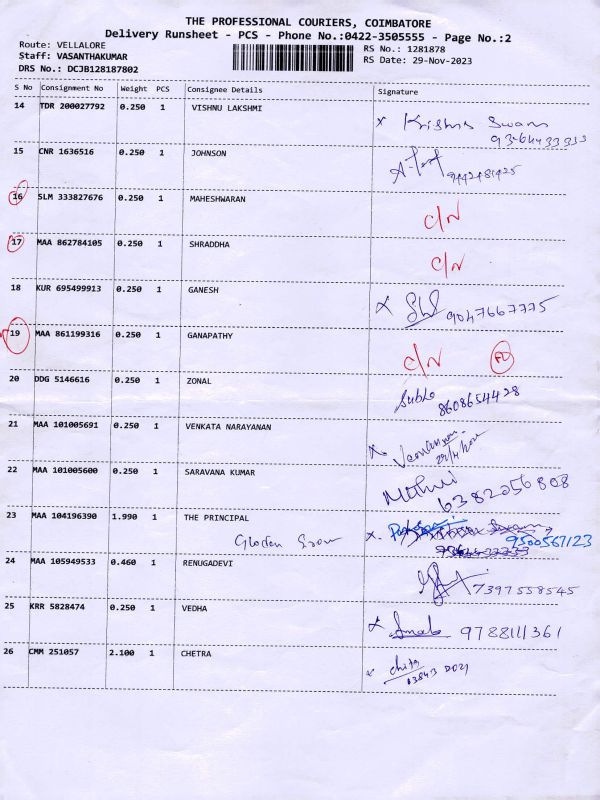 THE PROFESSIONAL COURIERS, COIMBATORE
Delivery Runsheet - PCS - Phone No.:0422-3505555 - Page No.:2
Route: VELLALORE RS No.: 1281878
Staff: VASANTHAKUMAR RS Date: 29-Nov-2023
DRS No.: DCJB128187802
S No Consignment No Weight PCS Consignee Details Signature
14 TDR 200027792 0.250 1 VISHNU LAKSHMI x Krishna Swami
15 CNR 1636516 0.250 1 JOHNSON 9442481425
16 SLM 333827676 0.250 1 MAHESHWARAN C/N
17 MAA 862784105 0.250 1 SHRADDHA C/N
18 KUR 695499913 0.250 1 GANESH x 9047667775
19 MAA 861199316 0.250 1 GANAPATHY C/N
20 DDG 5146616 0.250 1 ZONAL 8608654428
21 MAA 101005691 0.250 1 VENKATA NARAYANAN x
22 MAA 101005600 0.250 1 SARAVANA KUMAR 6382056808
23 MAA 104196390 1.990 1 THE PRINCIPAL x. 9500567123
24 MAA 105949533 0.460 1 RENUGADEVI 7397558545
25 KRR 5828474 0.250 1 VEDHA x 9788111361
26 CMM 251057 2.100 1 CHETRA x chitra